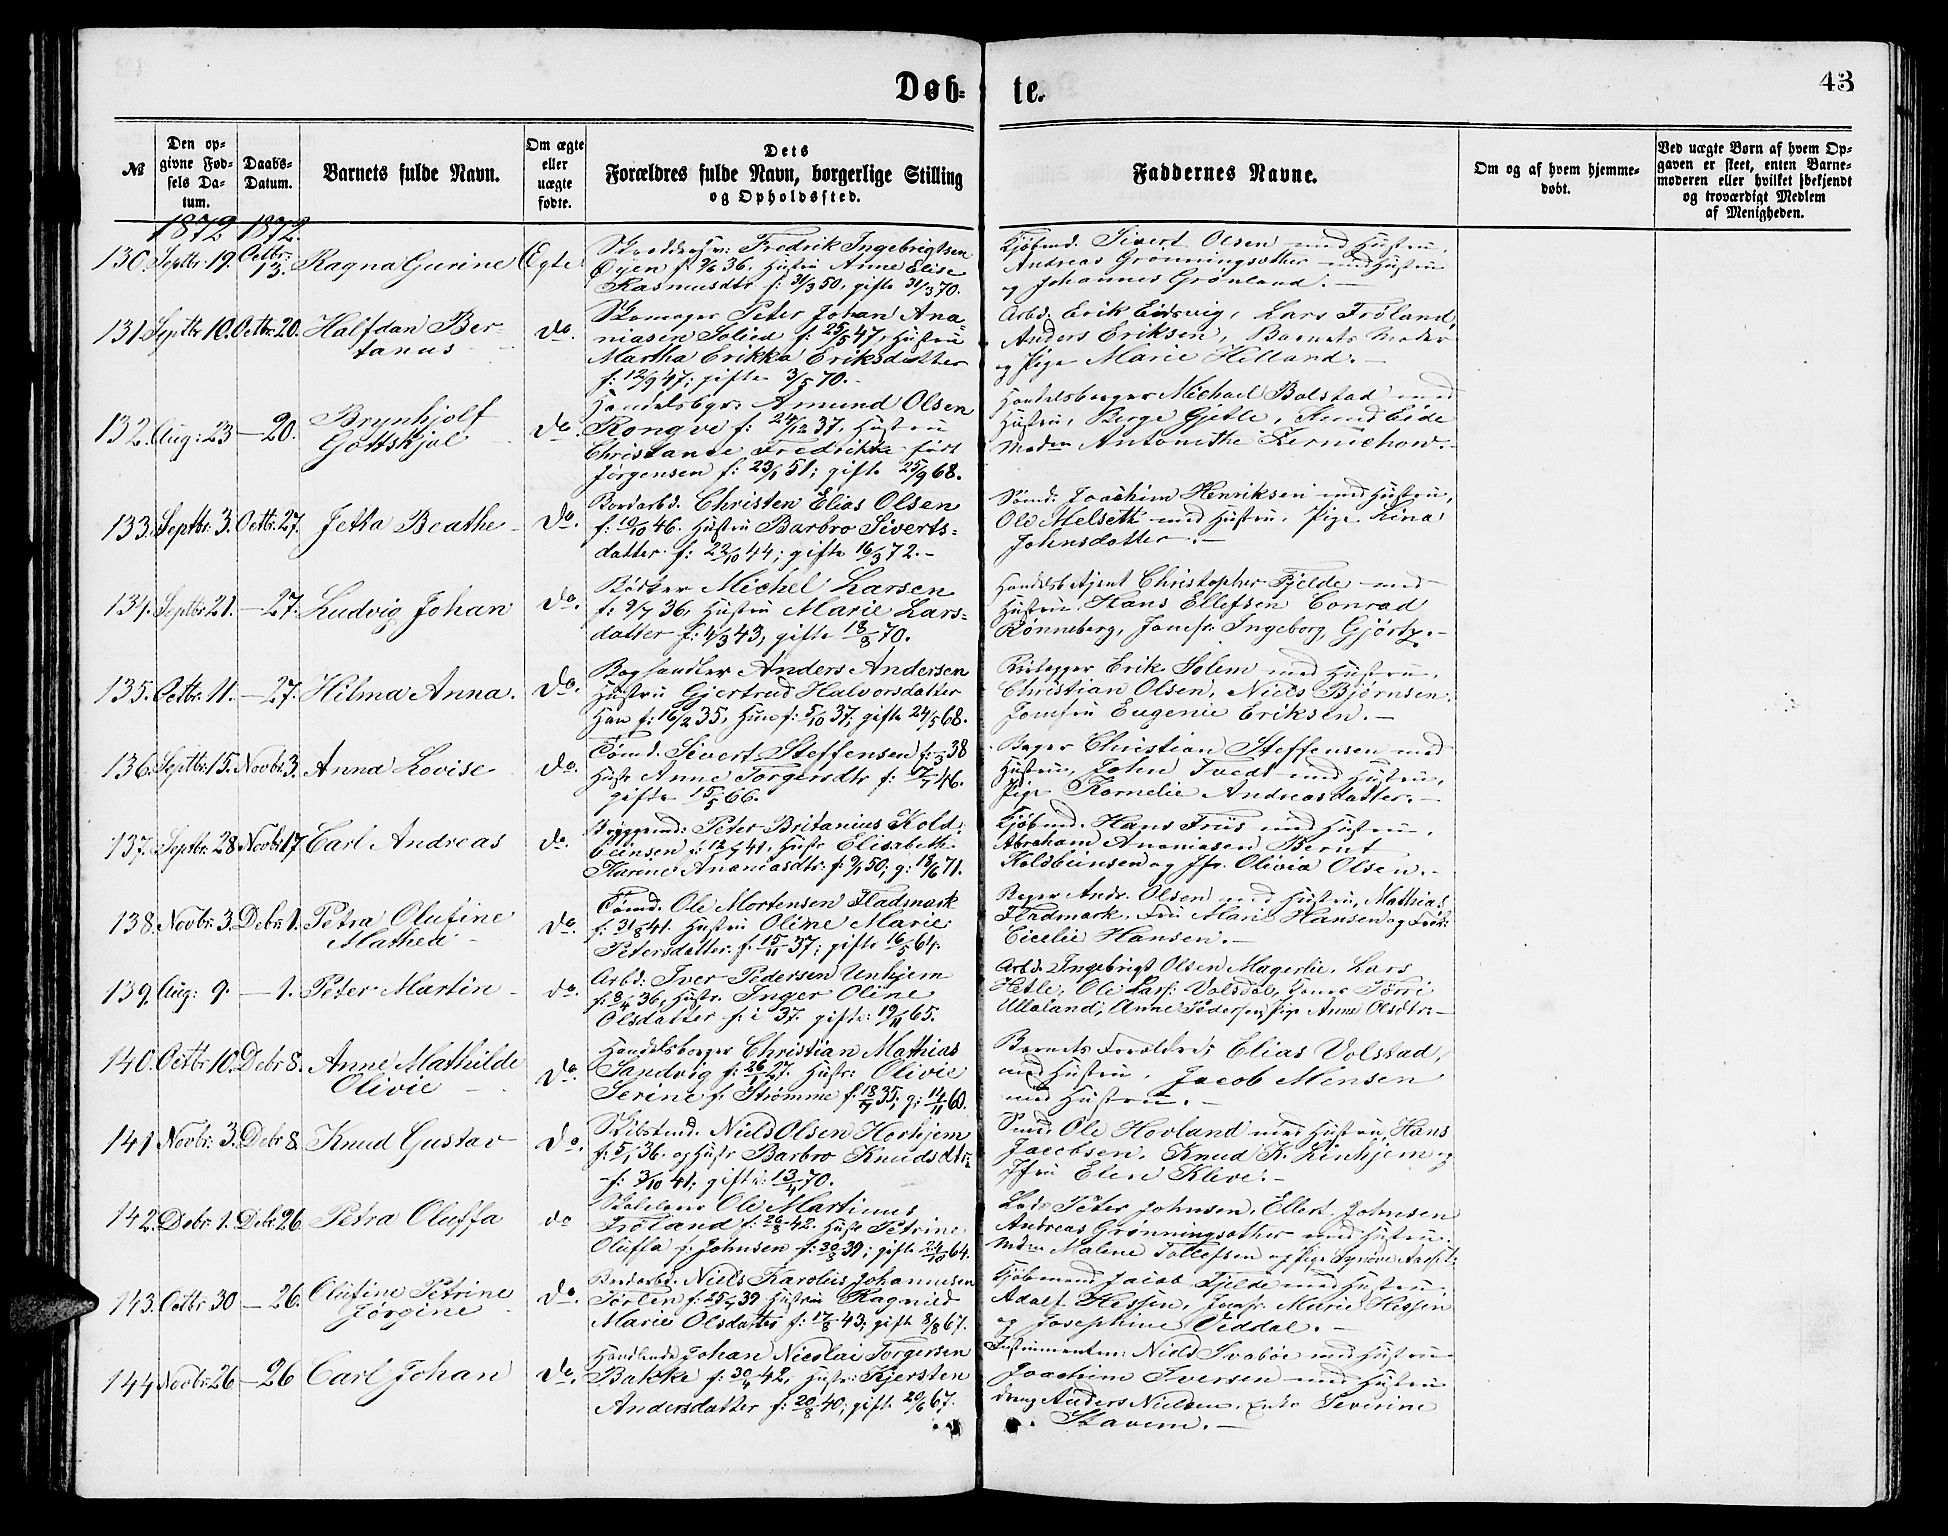 Døb-
te.
43
№
Den op-
givne Fød-
sels Da-
tum.
Daabs-
Datum.
Barnets fulde Navn.
Om ægte
eller
uægte
fødte.
Dets
Forældres fulde Navn, borgerlige Stilling
og Opholdssted.
Faddernes Navne.
Om og af hvem hjemme-
døbt.
Ved uægte Børn af hvem Op-
gaven er skeet, enten Barne-
moderen eller hvilket bekjendt
og troværdigt Medlem
af Menigheden.
1872 1872.
130. Septbr. 19. Octbr. 13. Ragna Gurine Egte
Fredrik Ingebrigtsen
Øyen f: 36. Hustru Anne Elise
Rasmusdtr f: 31/3 50, gifte 31/3 70.
Kjøbmd. Sivert Olsen med Hustru,
Andreas Grønningsæther med Hustru
og Johannes Grønland. –
131. Septbr. 10. Octbr. 20. Halfdan Ber-
tanus do.
Skomager Peter Johan Ana-
niasen Solied f: 25/5 47, Hustru
Martha Erikka Eriksdatter
f: 12/9 47; gifte 3/5 70. –
Arbd. Erik Eidsvig, Lars Frøland,
Anders Eriksen, Barnets Moder
og Pige Marie Helland. –
132. Aug: 23 – 20. Brynhjolf
Gottskjal do.
Handelsbgr: Amund Olsen
Rongve f: 24/12 37, Hustru
Christanse Fredrikke født
Jørgensen f: 23/1 51; gifte 25/9 68.
Handelsborger Michael Bolstad med
Hustru, Berge Gjetle, Amund Eide
Madm Antonethe Ternichow. –
133. Septbr. 3. Octbr. 27. Jetta Beathe do.
Bordarbd. Christen Elias Olsen
f: 46. Hustru Barbro Siverts-
datter f: 22/10 44; gifte 16/3 72. –
Tømd. Joachim Henriksen med Hustru,
Ole Melseth med Hustru, Pige Lina
Johnsdatter. –
134. Septbr. 21. – 27. Ludvig Johan do.
Bødker Michel Larsen
f: 9/7 36, Hustru Marie Lars-
datter f: 4/3 43, gifte 18/8 70.
Handels Agent Christopher Fjelde med
Hustru. Hans Ellefsen Conrad
Rønneberg, Jomfr. Ingeborg Gjørtz. –
135. Octbr. 11. – 27. Hilma Anna. do.
Boghandler Anders Andersen
Hustru Gjertrud Halvorsdatter
Han f: 16/2 35, Hun f: 5/10 37; gifte 24/5 68.
Erik Solem med Hustru,
Christian Olsen, Niels Bjørnsen,
Jomfru Eugenie Eriksen. –
136. Septbr. 15. Novbr. 3. Anna Lovise do.
Tømd. Sivert Steffensen f: 38
Hustr Anne Torgersdtr f: 46.
gifte 15/5 66.
Bager Christian Steffensen med
Hustru, John Tvedt med Hustru,
Pige Kornelie Andreasdatter. –
137. Septbr. 28. Novbr. 17. Carl Andreas do.
Bryggemd: Peter Britanius Kold-
beinsen f: 41, Hustr Elisabeth
Karine Ananiasdtr: f: 9/1 50; g: 18/6 71.
Kjøbmd. Hans Friis med Hustru,
Abraham Ananiasen Bernt
Koldbeinsen og Jfr. Olivia Olsen. –
138. Novbr. 3. Debr. 1. Petra Olufine
Mathea – do.
Tømd. Ole Mortensen Fladmark
f: 31/8 41. Hustru Oline Marie
Petersdatter f: 15/11 37; gifte 16/5 64.
Bager Andr. Olsen med Hustru, Mathias
Fladmark, Fru Marie Hansen og Frøk.
Cicelie Hansen. –
139. Aug: 9. – 1. Peter Martin – do.
Arbd: Iver Pedersen Unhjem
f: 8/4 36, Hustr. Inger Oline
Olsdatter f: i 37. gifte: 19/11 65.
Arbd. Ingebrigt Olsen Magerlie, Lars
Hetle, Ole Lars: Volsdal,
Anne Pedersen, Pige Anne Olsdtr. –
140. Octbr. 10. Debr. 8. Anne Mathilde
Olivie – do.
Handelsborger Christian Mathias
Sandvig f: 26/1 27. Hustr: Olivie
Serine f. Strømme f: 35; g: 14/11 60.
Barnets Forældre, Elias Volstad,
med Hustru, Jacob Mensen
med Hustru. –
141. Novbr. 3. Debr. 8. Knud Gustav do.
Niels Olsen Horhjem
f: 5/1 36. og Hustr Barbro Knudsdtr.
f: 3/10 41; gifte: 13/4 70.
Smed Ole Hovland med Hustru, Hans
Jacobsen, Knud K. og
Jfru Elen Kleve. –
142. Debr. 1. Debr. 26. Petra Oluffa do
Ole Martinus
Frøland f: 26/8 42. Hustr Petrine
Oluffa f. Johnsen f: 30/8 39; gifte 24/10 64.
Peter Johnsen, Ellert Johnsen
Andreas Grønningsæther med Hustru.
Mdm Malene Tollefsen og Pige Synøve
143. Octbr. 30 – 26. Olufine Petrine
Jørgine do.
Bordarbd. Niels Karolius Johannesen
f: 39 Hustru Ragnild
Marie Olsdatter f: 17/8 43; gift 8/8 67.
Kjøbmand Jacob Fjelde med Hustru,
Adolf Hessen, Jomfr. Marie Hessen
og Josephine Viddal. –
144. Novbr. 26 – 26 Carl Johan do.
Handlende Johan Nicolai Torgersen
Bakke f: 42, Hustr: Kjersten
Andersdatter f: 20/8 40; gifte 20/6 67.
Instrumentm: Niels Svabøe med Hustru
Joachim Iversen med Hustru
Dreng Anders Nielsen, Enke Severine
Stavem. –